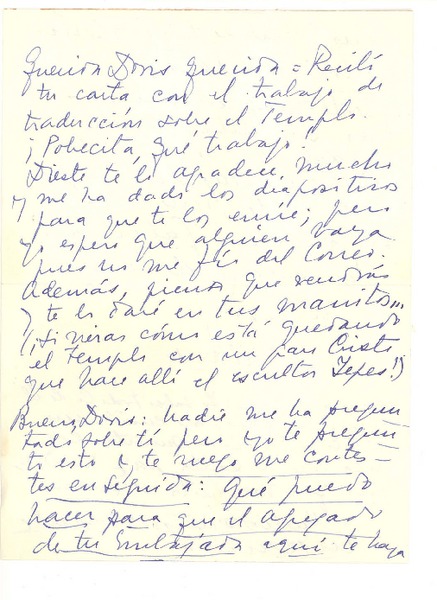 Querida Doris querida = Recibí
tu carta con el trabajo de
traducción sobre el Templo.
¡Pobecita, qué trabajo!
Dieste te lo agradece mucho
y me ha dado los diapositivos
para que te los envíe; pero
yo espero que alguien vaya
pues no me fío del Correo.
Además, pienso que vendrás
y te lo daré en tus manitos...
(¡Si vieras cómo está quedando
el Templo con un gran Cristo
que hace allí el escultor Yepes!)
Bueno, Doris: nadie me ha pregun
tado sobre tí pero yo te pregun
to esto y te ruego me contes-
tes enseguida: Qué puedo
hacer para que el agregado
de tu Embajada aquí te haga